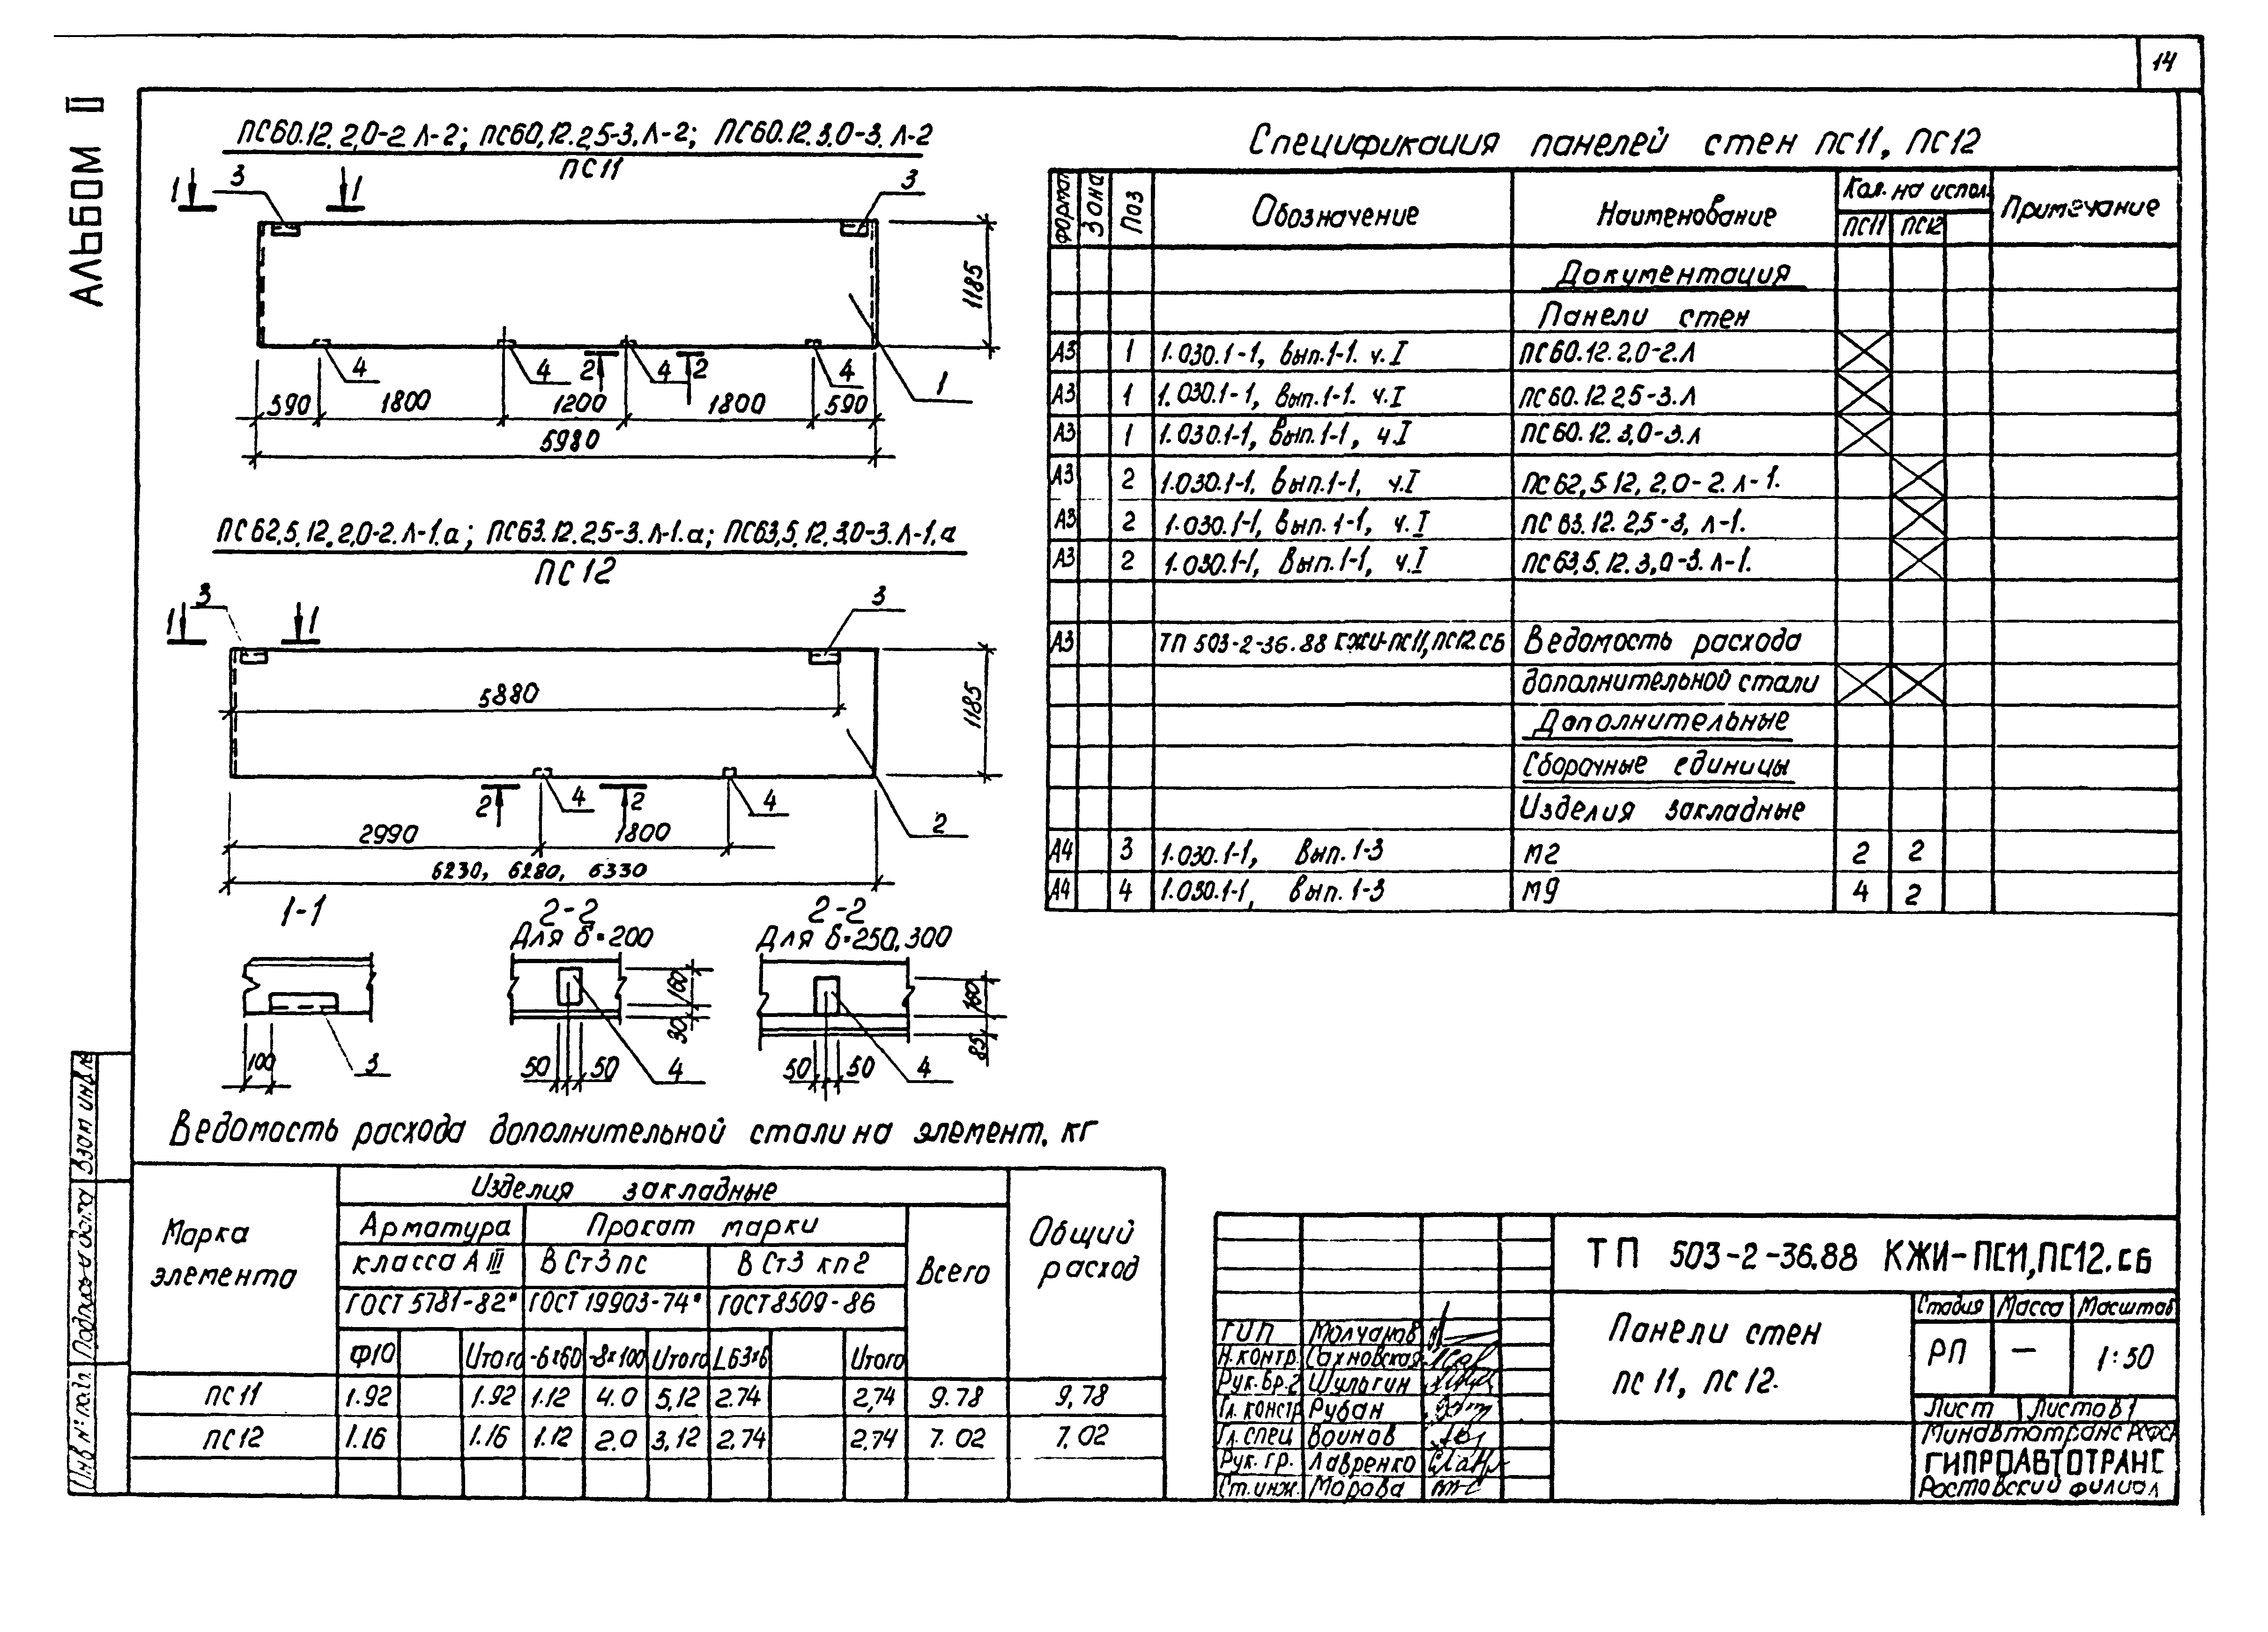 14
АЛЬБОМ II
ПС60.12.2,0-2.Л-2; ПС60.12.2,5-3.Л-2; ПС60.12.3,0-3.Л-2
ПС11
1 3 1 3
1185
4 4 2 4 2 4 1
590 1800 1200 1800 590
5980
ПС62,5.12.2,0-2.Л-1.а; ПС63.12.2,5-3.Л-1.а; ПС63,5.12.3,0-3.Л-1.а
ПС12
1 3 1 3
5880
1185
2 4 2 4 2
2990 1800
6230, 6280, 6330
1-1
100 3
2-2
Для δ=200
160
30
50 50 4
2-2
Для δ=250,300
160
85
50 50 4
Спецификация панелей стен ПС11, ПС12
Формат Зона Поз Обозначение Наименование Кол. на испол. Примечание
ПС11 ПС12
Документация
Панели стен
А3 1 1.030.1-1, вып.1-1. ч.I ПС60.12.2,0-2.Л
А3 1 1.030.1-1, вып.1-1. ч.I ПС60.12.2,5-3.Л
А3 1 1.030.1-1, вып.1-1, ч.I ПС60.12.3,0-3.Л
А3 2 1.030.1-1, вып.1-1, ч.I ПС62,5.12,2,0-2.Л-1.
А3 2 1.030.1-1, вып.1-1, ч.I ПС63.12.2,5-3,Л-1.
А3 2 1.030.1-1, вып.1-1, ч.I ПС63,5.12.3,0-3.Л-1.
А3 ТП 503-2-36.88 КЖИ-ПС11,ПС12.СБ Ведомость расхода
дополнительной стали
Дополнительные
Сборочные единицы
Изделия закладные
А4 3 1.030.1-1, вып.1-3 М2 2 2
А4 4 1.030.1-1, вып.1-3 М9 4 2
Ведомость расхода дополнительной стали на элемент, кг
Марка элемента Изделия закладные Общий расход
Арматура Прокат марки Всего
класса А III ВСт3пс ВСт3кп2
ГОСТ 5781-82* ГОСТ 19903-74* ГОСТ 8509-86
Ф10 Итого -6х60 -8х100 Итого L63х6 Итого
ПС11 1.92 1.92 1.12 4.0 5,12 2.74 2,74 9.78 9,78
ПС12 1.16 1.16 1.12 2.0 3,12 2.74 2.74 7.02 7,02
ТП 503-2-36.88 КЖИ-ПС11,ПС12.СБ
Панели стен
ПС11, ПС12.
Стадия Масса Масштаб
РП — 1:50
Лист Листов 1
Минавтотранс РСФСР
ГИПРОАВТОТРАНС
Ростовский филиал
ГИП Молчанов
Н.контр. Сахновская
Рук.бр.2 Шульгин
Гл.констр Рубан
Гл.спец Воинов
Рук.гр. Лавренко
Ст.инж. Морова
Инв № подл. Подпись и дата Взам инв.№